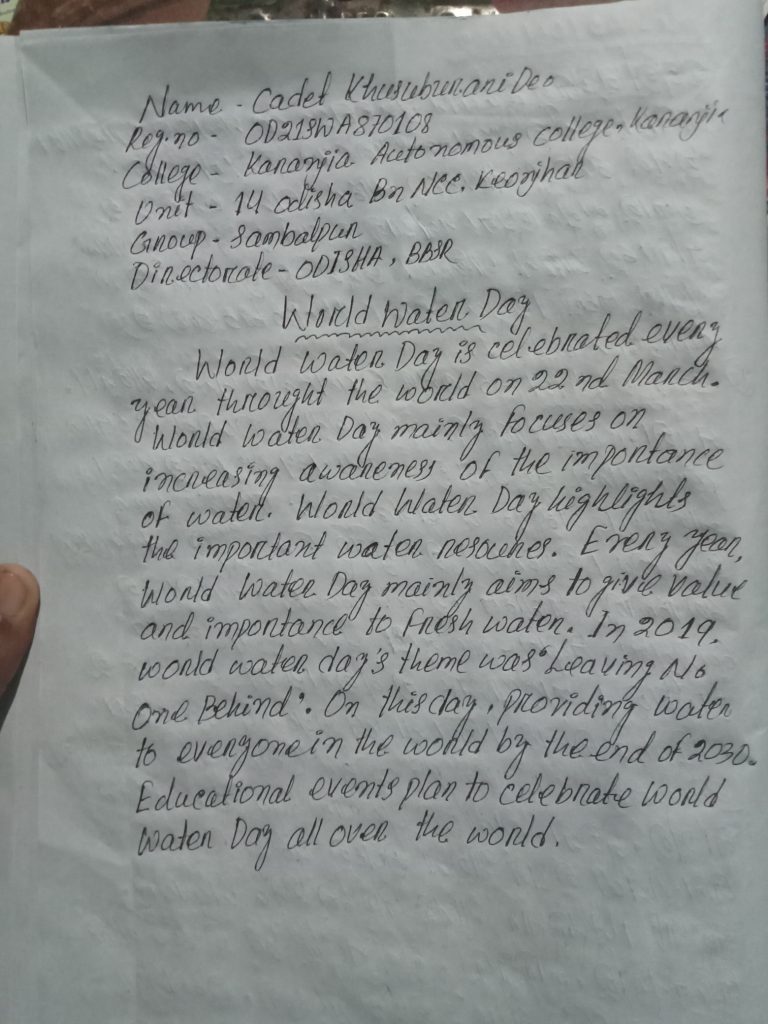 Name - Cadet Khusuburani Deo
Reg.no - OD21SWA870108
College - Karanjia Autonomous college, Karanjia
Unit - 14 odisha Bn NCC, Keonjhar
Group - Sambalpur
Directorate - ODISHA, BBSR
World Water Day
World water Day is celebrated every
year throught the world on 22 nd March.
World water Day mainly focuses on
increasing awareness of the importance
of water. World Water Day highlights
the important water resources. Every year,
World Water Day mainly aims to give value
and importance to fresh water. In 2019,
world water day's theme was "Leaving No
One Behind". On this day, providing water
to everyone in the world by the end of 2030.
Educational events plan to celebrate world
Water Day all over the world.